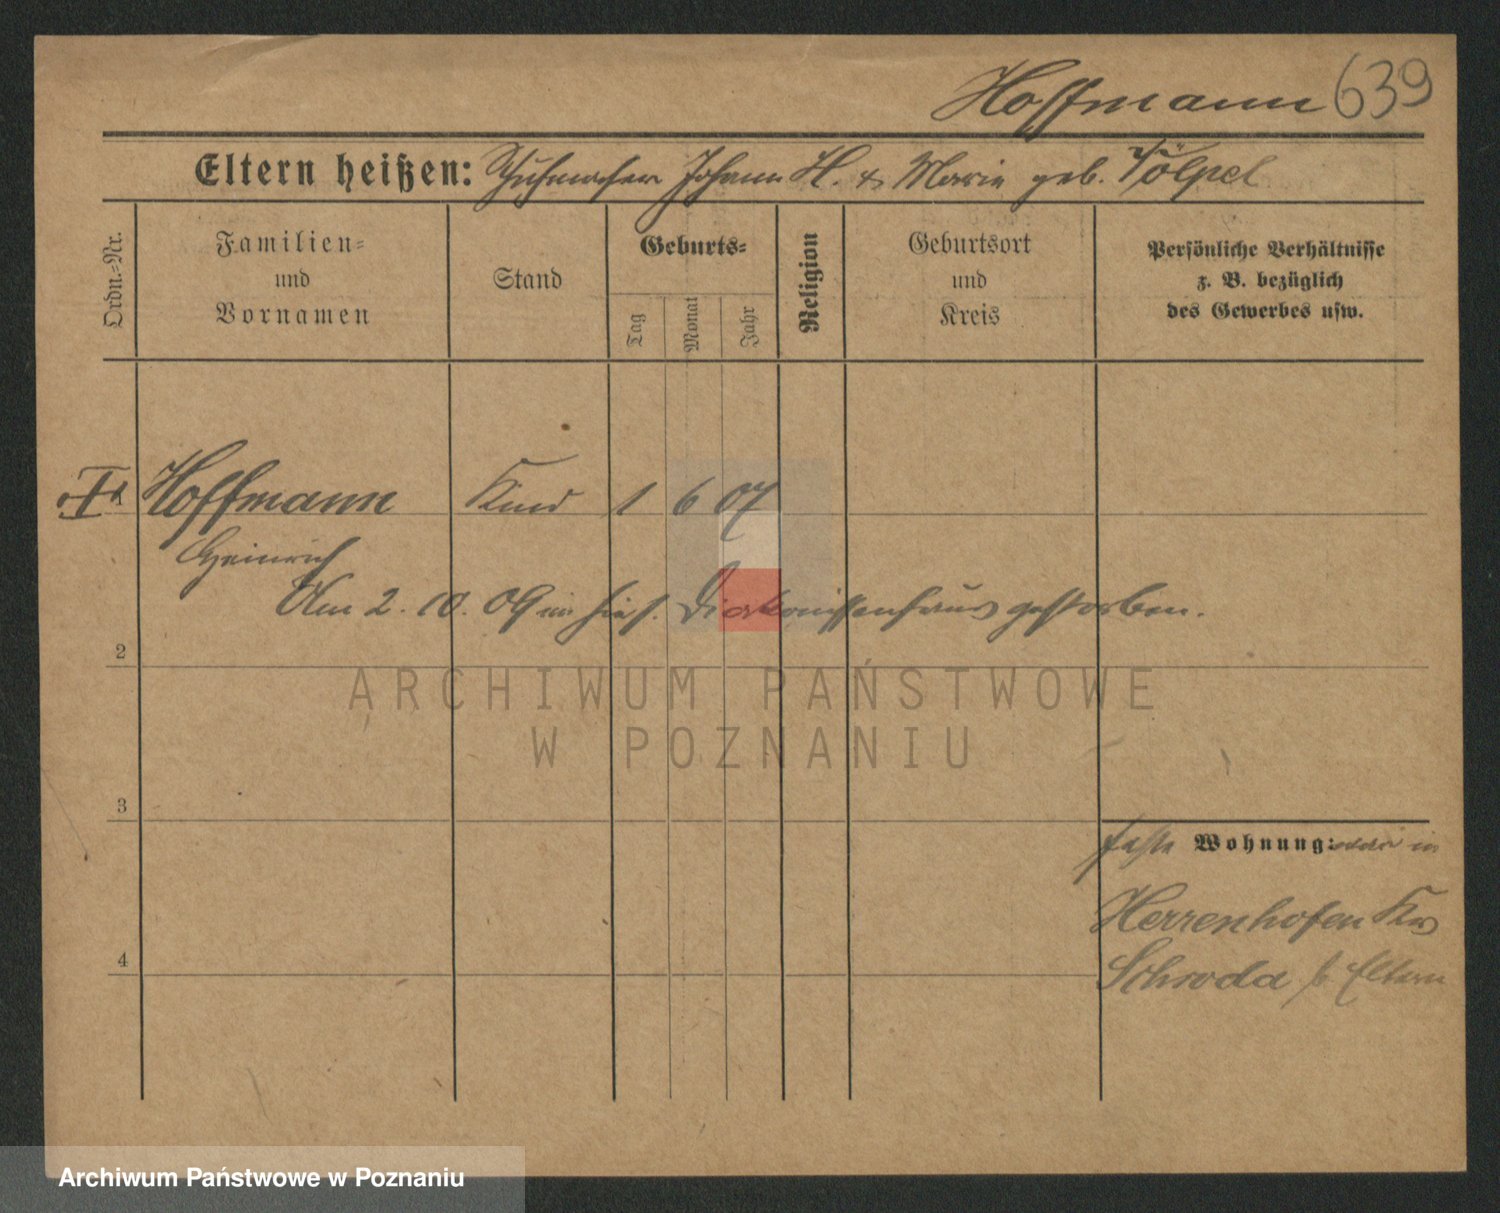 Hoffmann 639
Eltern heißen: Schuhmacher Johann H. & Marie geb. Tölpel
Ordn.-Nr.
Familien- und Vornamen
Stand
Geburts-
Tag
Monat
Jahr
Religion
Geburtsort und Kreis
Persönliche Verhältnisse z. B. bezüglich des Gewerbes usw.
1 Hoffmann Kind 1 6 07
Heinrich
Am 2. 10. 09 im hies. Diakonissenhaus gestorben.
2
ARCHIWUM PAŃSTWOWE
W POZNANIU
3
feste Wohnung: in
Herrenhofen Krs
Schroda b Eltern
4
Archiwum Państwowe w Poznaniu